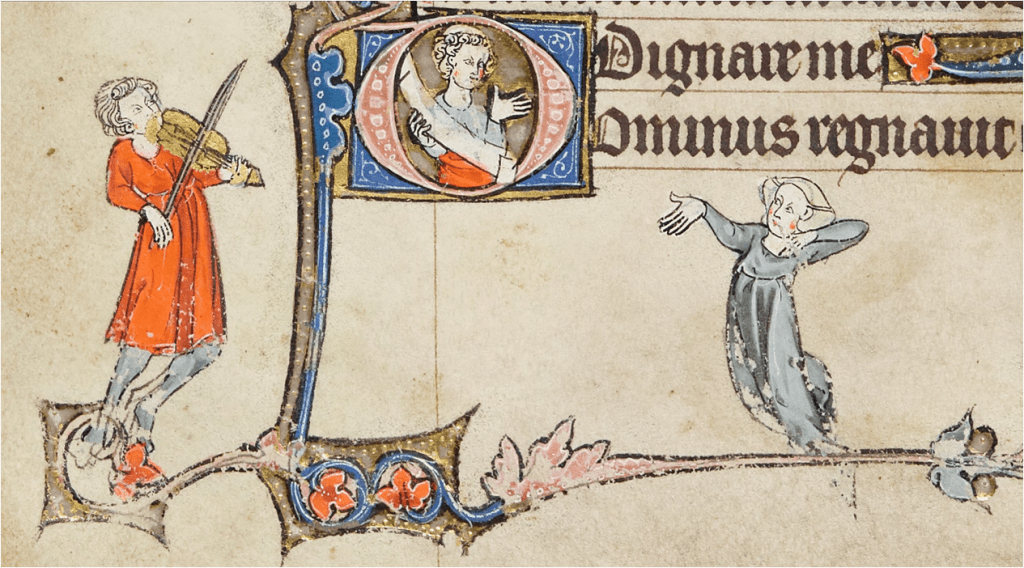 Dignare me
Dominus regnauit